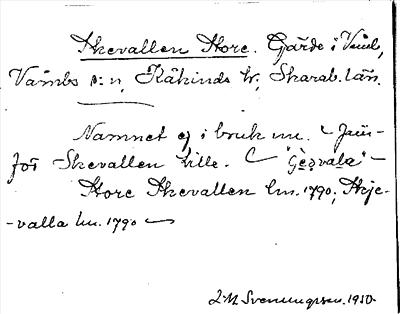 Skevallen Store. Gärde i Vimb,
Våmbs s:n, Kåkinds hd, Skarab. län.
Namnet ej i bruk nu. – Jäm-
för Skevallen Lille.
Store Skevallen lm. 1790; Skje-
-valla lm. 1790 –
L. M. Svenungsson. 1930.